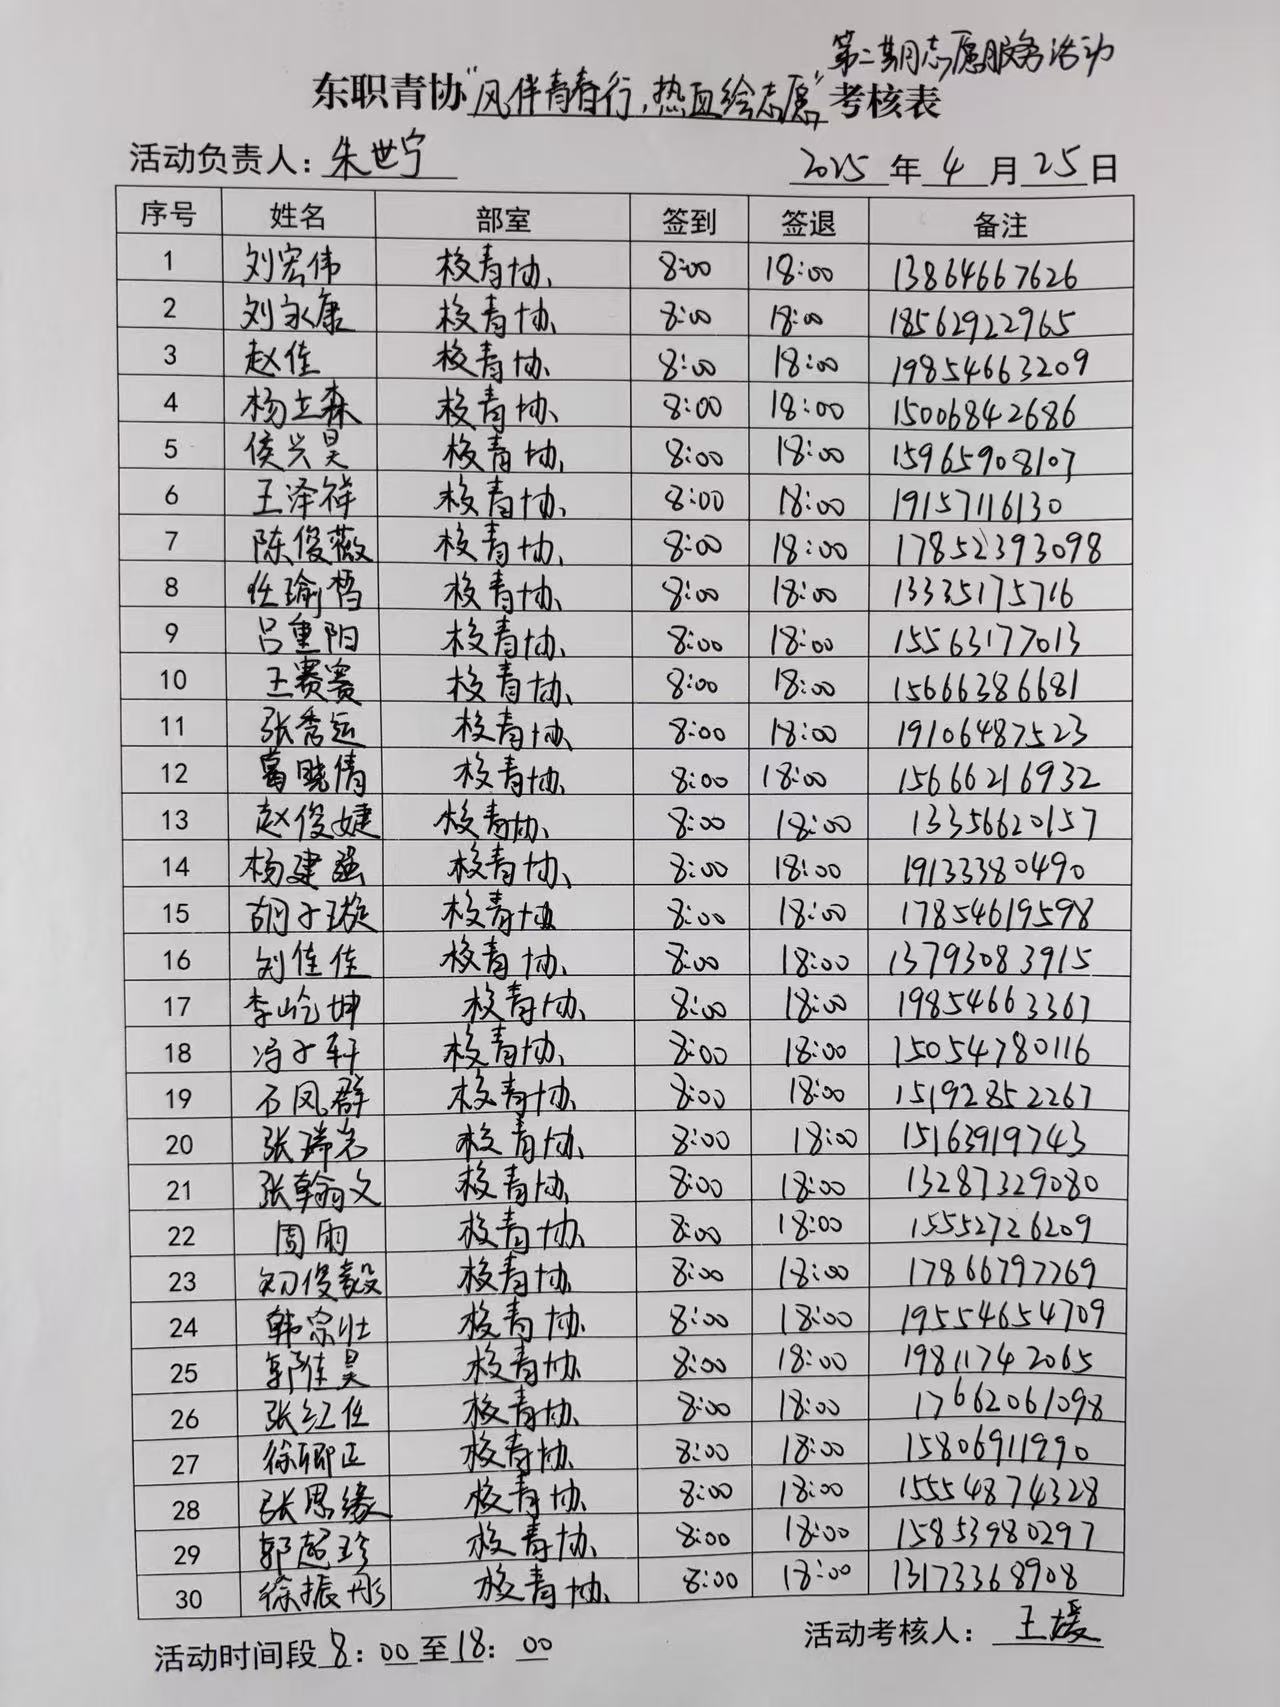 第二期同志愿服务活动
东职青协“风伴青春行，热血绘志愿”考核表
活动负责人：朱世宁 2025年4月25日
序号 姓名 部室 签到 签退 备注
1 刘宏伟 校青协 8:00 18:00 13864667626
2 刘永康 校青协 8:00 18:00 18562922965
3 赵佳 校青协 8:00 18:00 19854663209
4 杨立森 校青协 8:00 18:00 15006842686
5 侯兴昊 校青协 8:00 18:00 15965908107
6 王泽祥 校青协 8:00 18:00 19157116130
7 陈俊薇 校青协 8:00 18:00 17852393098
8 任瑜楷 校青协 8:00 18:00 13335175716
9 吕重阳 校青协 8:00 18:00 15563177013
10 王赛赛 校青协 8:00 18:00 15666386681
11 张秀运 校青协 8:00 18:00 19106487523
12 葛晓倩 校青协 8:00 18:00 15666216932
13 赵俊婕 校青协 8:00 18:00 13356620157
14 杨建强 校青协 8:00 18:00 19133380490
15 胡子璇 校青协 8:00 18:00 17854619598
16 刘佳佳 校青协 8:00 18:00 13793083915
17 李屹坤 校青协 8:00 18:00 19854663367
18 冯子轩 校青协 8:00 18:00 15054780116
19 石凤群 校青协 8:00 18:00 15192852267
20 张瑞岩 校青协 8:00 18:00 15163919743
21 张翰文 校青协 8:00 18:00 13287329080
22 周雨 校青协 8:00 18:00 15552726209
23 刘俊毅 校青协 8:00 18:00 17866797769
24 韩宗壮 校青协 8:00 18:00 19554654709
25 郭佳昊 校青协 8:00 18:00 19811742065
26 张红任 校青协 8:00 18:00 17662061098
27 徐卿正 校青协 8:00 18:00 15806911990
28 张思缘 校青协 8:00 18:00 15554874328
29 郭超珍 校青协 8:00 18:00 15853980297
30 徐振彤 校青协 8:00 18:00 13173368908
活动时间段8：00至18：00 活动考核人：王媛